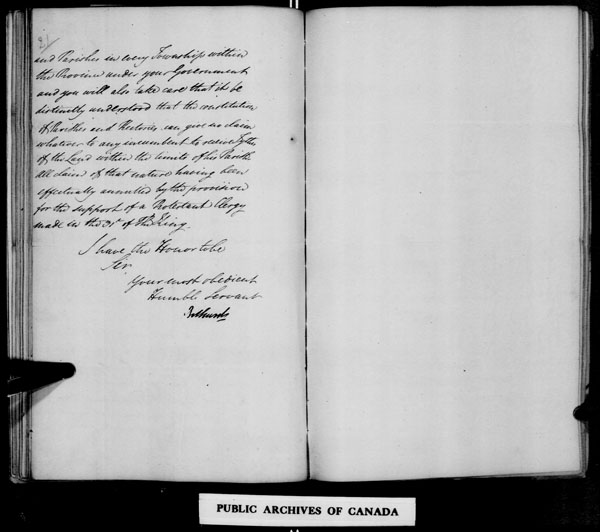 and Parishes in every Township within
the Province under your Government
and you will also take care that it be
distinctly understood that the constitution
of Parishes and Rectories can give no claim
whatever to any incumbent to receive Tythes
of the Land within the limits of his Parish
all claim of that nature having been
effectually annulled by the provision
for the support of a Protestant Clergy
made in the 31st of the King.
I have the Honor to be
Sir
Your most obedient
Humble Servant
Bathurst
PUBLIC ARCHIVES OF CANADA